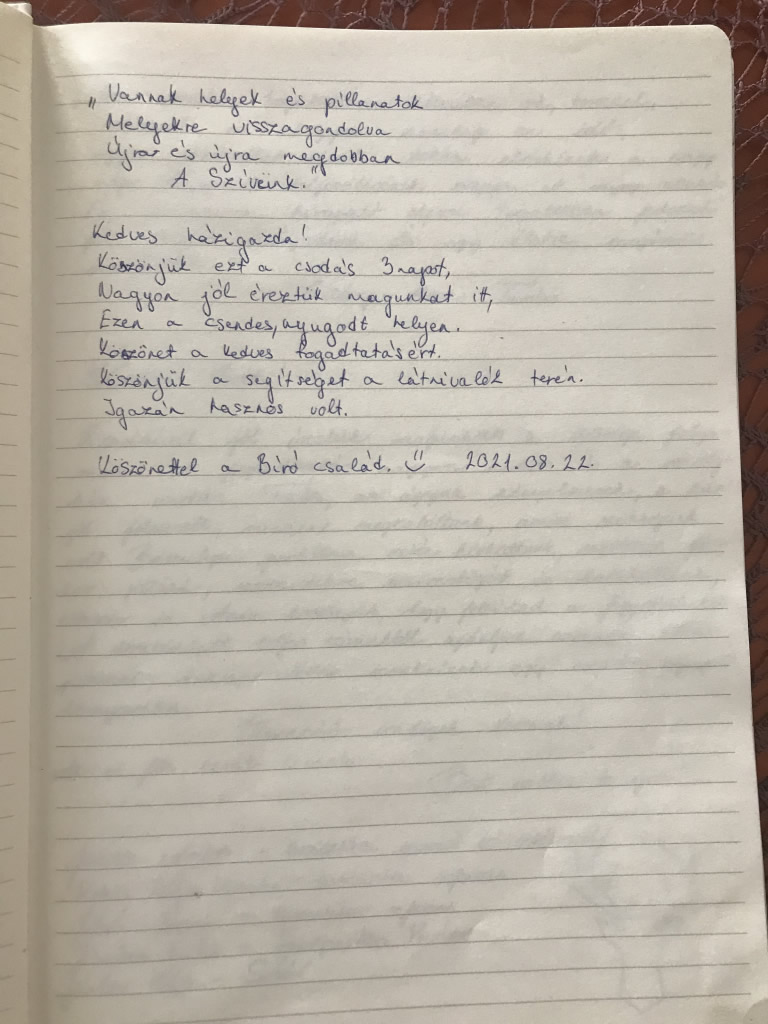 „Vannak helyek és pillanatok
Melyekre visszagondolva
Újra és újra megdobban
A Szívünk."
Kedves házigazda!
Köszönjük ezt a csodás 3 napot,
Nagyon jól éreztük magunkat itt,
Ezen a csendes, nyugodt helyen.
Köszönet a kedves fogadtatásért.
Köszönjük a segítséget a látnivalók terén.
Igazán hasznos volt.
Köszönettel a Bíró család. 2021.08.22.